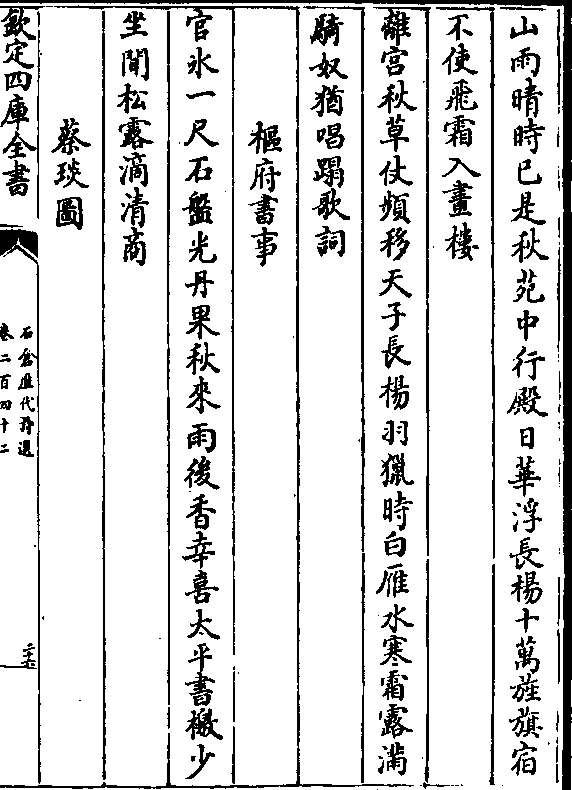 山雨晴時已是秋苑中行殿日華浮長楊十萬旌旗宿
不使飛霜入畫樓
離宮秋草仗頻移天子長楊羽獵時白雁水寒霜露滿
騎奴猶唱踏歌詞
樞府書事
官氷一尺石盤光丹果秋來雨後香幸喜太平書檄少
坐聞松露滴清商
蔡琰圖
欽定四庫全書
石倉歴代詩選
卷二百四十二
二十六